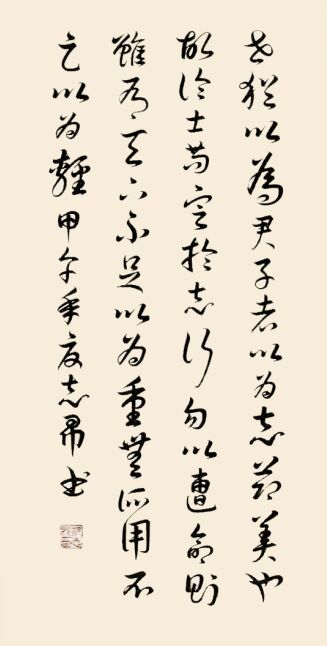 世猶以為君子者以為志節美也
故論士苟定於志行勿以遭命則
雖有天下不足以為重無所用不
以為輕甲午年夏志書